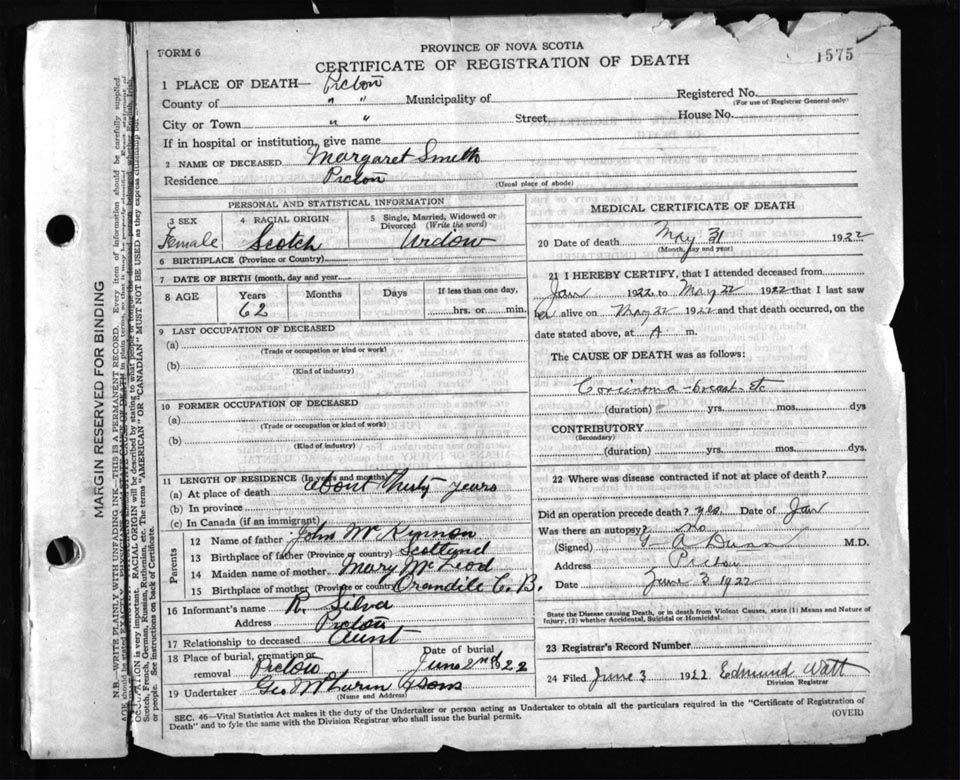 FORM 6
PROVINCE OF NOVA SCOTIA
CERTIFICATE OF REGISTRATION OF DEATH
1575
1 PLACE OF DEATH— Pictou
County of " " Municipality of
Registered No.
(For use of Registrar General only)
City or Town " " Street
House No.
If in hospital or institution, give name
2 NAME OF DECEASED Margaret Smith
Residence Pictou
(Usual place of abode)
PERSONAL AND STATISTICAL INFORMATION
3 SEX
Female
4 RACIAL ORIGIN
Scotch
5 Single, Married, Widowed or Divorced (Write the word)
Widow
6 BIRTHPLACE (Province or Country)
7 DATE OF BIRTH (month, day and year)
8 AGE
Years
62
Months
Days
If less than one day,
hrs. or min.
9 LAST OCCUPATION OF DECEASED
(a)
(Trade or occupation or kind or work)
(b)
(Kind of industry)
10 FORMER OCCUPATION OF DECEASED
(a)
(Trade or occupation or kind or work)
(b)
(Kind of industry)
11 LENGTH OF RESIDENCE (In years and months)
(a) At place of death About thirty years
(b) In province
(c) In Canada (if an immigrant)
Parents
12 Name of father John McKynnon
13 Birthplace of father (Province or country) Scotland
14 Maiden name of mother Mary McLeod
15 Birthplace of mother (Province or country) C. B.
16 Informant's name R. Silva
Address Pictou
17 Relationship to deceased Aunt
18 Place of burial, cremation or removal Pictou
Date of burial
June 2nd 1922
19 Undertaker Geo & Sons
(Name and Address)
MEDICAL CERTIFICATE OF DEATH
20 Date of death May 31 1922
(Month, day and year)
21 I HEREBY CERTIFY, that I attended deceased from
Jan 1922 to May 22 1922 that I last saw
her alive on May 22 1922 and that death occurred, on the
date stated above, at A m.
The CAUSE OF DEATH was as follows:
Corcinoma - breast etc
(duration) yrs. mos. dys
CONTRIBUTORY
(Secondary)
(duration) yrs. mos. dys.
22 Where was disease contracted if not at place of death?
Did an operation precede death? yes. Date of Jan
Was there an autopsy? no
(Signed) A Dunn M.D.
Address Pictou
Date June 3 1922
State the Disease causing Death, or in death from Violent Causes, state (1) Means and Nature of
Injury, (2) whether Accidental, Suicidal or Homicidal.
23 Registrar's Record Number
24 Filed June 3 1922 Edmund Watt
Division Registrar
SEC. 46—Vital Statistics Act makes it the duty of the Undertaker or person acting as Undertaker to obtain all the particulars required in the "Certificate of Registration of
Death" and to fyle the same with the Division Registrar who shall issue the burial permit.
(OVER)
MARGIN RESERVED FOR BINDING
N.B.—WRITE PLAINLY WITH UNFADING INK—THIS IS A PERMANENT RECORD. Every item of information should be carefully supplied.
OCCUPATION is very important. RACIAL ORIGIN will be described by stating to what people or tongue the deceased person belonged, whether English, Irish,
Scotch, French, German, Russian, Ruthenian, etc. The terms "AMERICAN" OR "CANADIAN" MUST NOT BE USED as they express citizenship but
or people. See instructions on back of Certificate.